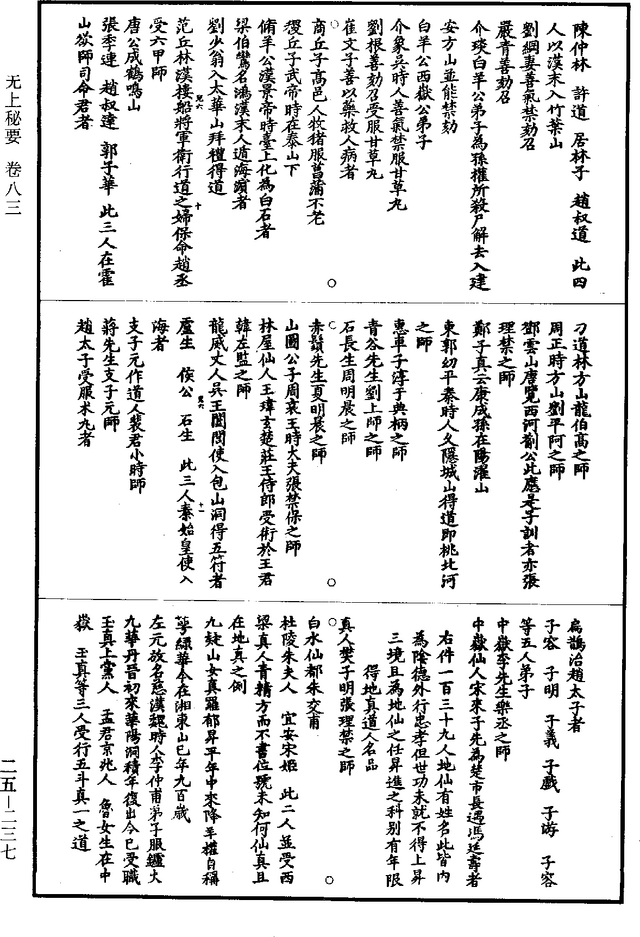 无上秘要 卷八三
陳仲林 許道 居林子 趙叔道 此四
人以漢末入竹葉山
劉綱妻善氣禁劾召
嚴青善劾召
介琰白羊公弟子為孫權所殺尸解去入建
安方山並能禁劾
白羊公西嶽公弟子
介象吳時人善氣禁服甘草丸
劉根善劾召受服甘草丸
崔文子善以藥救人病者
商丘子高邑人牧猪服菖蒲不老
稷丘子武帝時在泰山下
脩羊公漢景帝時臺上化為白石者
梁伯鸞名鴻漢末人遁海濱者
劉少翁入太華山拜禮得道
范丘林漢接船將軍衛行道之婦保命趙丞
受六甲師
唐公成鶴鳴山
張季連 趙叔達 郭子華 此三人在霍
山欲師司命君者
刁道林方山龍伯高之師
周正時方山劉平阿之師
鄧雲山唐覽西河薊公此應是子訓者亦張
理禁之師
鄭子真云康成孫在陽濯山
東郭幼平秦時人久隱城山得道即桃北河
之師
惠車子淳于典柄之師
青谷先生劉上師之師
石長生周明晨之師
赤鬚先生夏明晨之師
山圖公子周哀王時大夫張禁保之師
林屋仙人王瑋玄楚莊王侍郎受術於王君
韓左監之師
龍威丈人吳王闔閭使入包山洞得五符者
盧生 侯公 石生 此三人秦始皇使入
海者
支子元作道人裴君小時師
蔣先生支子元師
趙太子受服朮九者
扁鵲治趙太子者
子容 子明 子義 子戲 子游 子容
等五人弟子
中嶽李先生樂丞之師
中嶽仙人宋來子先為楚市長遇馮延壽者
右件一百三十九人地仙有姓名此皆內
為陰德外行忠孝但世功未就不得上昇
三境且為地仙之任昇進之科別有年限
得地真道人名品
真人樊子明張理禁之師
白水仙都朱交甫
杜陵朱夫人 宜安宋姬 此二人並受西
梁真人青精方而不書位號未知何仙真且
在地真之例
九嶷山女真羅郁昇平年中來降羊權自稱
萼綠華今在湘東山已年九百歲
左元放名慈漢魏時人李仲甫弟子服鑪火
九華丹晉初來華陽洞積年復出今已受職
王真上黨人 孟君京兆人 魯女生在中
嶽 王真等三人受行五斗真一之道
二五—二三七